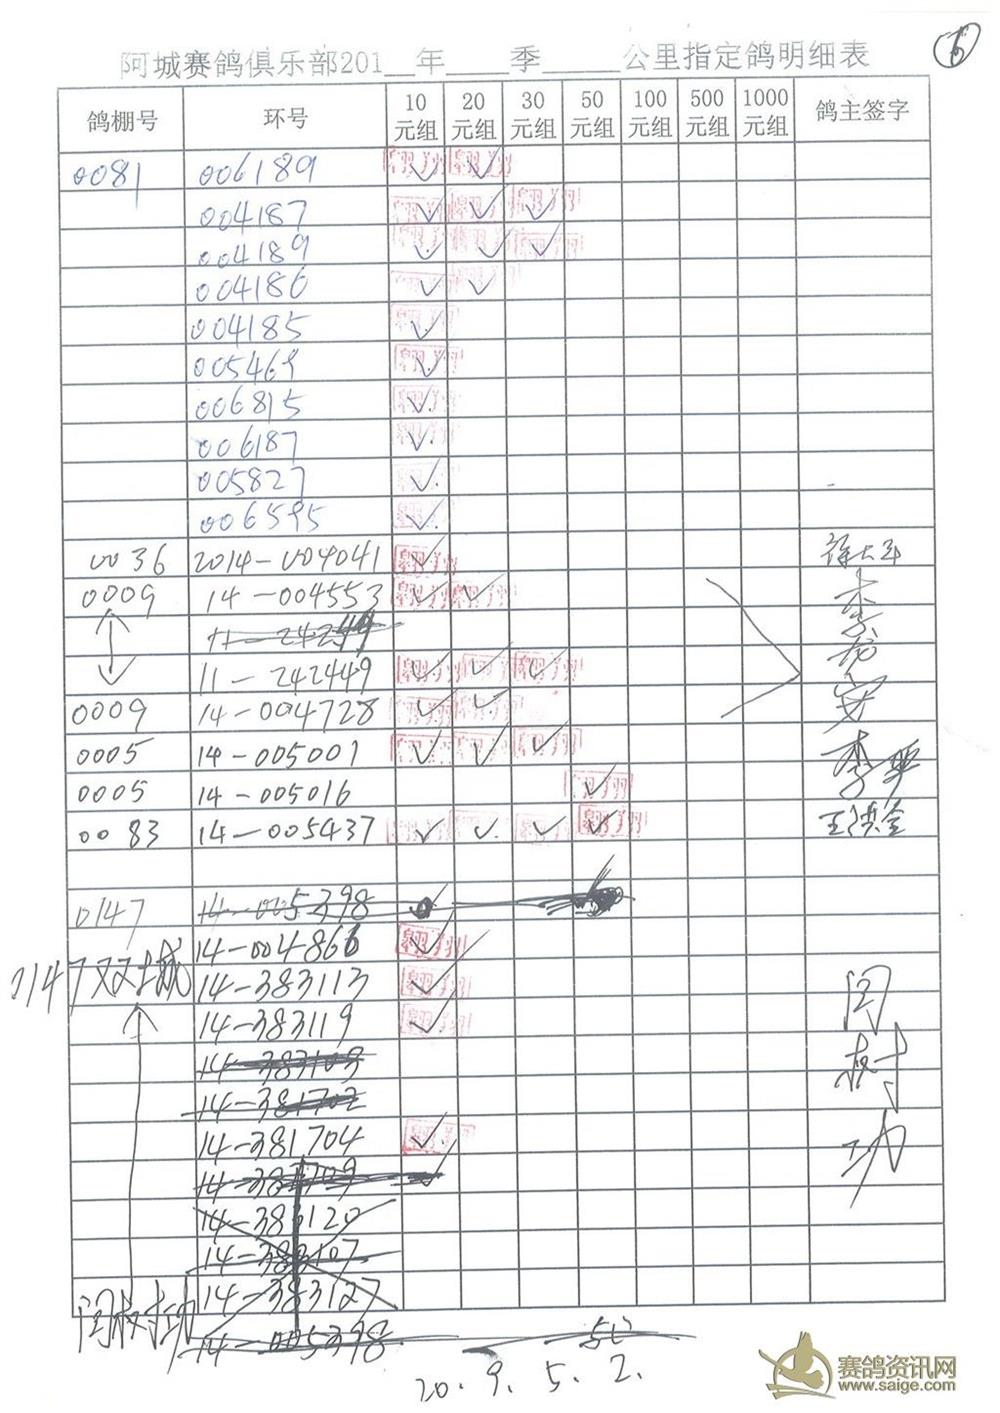 6
阿城赛鸽俱乐部201__年____季_____公里指定鸽明细表
鸽棚号 环号 10元组 20元组 30元组 50元组 100元组 500元组 1000元组 鸽主签字
0081 006189 ✓ ✓
004187 ✓ ✓ ✓
004189 ✓ ✓ ✓
004186 ✓ ✓
004185 ✓
005469 ✓
006815 ✓
006187 ✓
005827 ✓
006595 ✓
0036 2014-004041 ✓
0009 14-004553 ✓ ✓
11-242449 ✓ ✓ ✓
0009 14-004728 ✓ ✓
0005 14-005001 ✓ ✓ ✓
0005 14-005016 ✓
0083 14-005437 ✓ ✓ ✓ ✓ 王洪全
0147 14-005398
14-004866 ✓
0147双城 14-383113 ✓
14-383119 ✓
14-383103
14-381702
14-381704 ✓
14-381709 ✓
14-383120
14-383107
14-383127
闫树功
14-005398 50
20.9.5.2.
赛鸽资讯网
www.saige.com